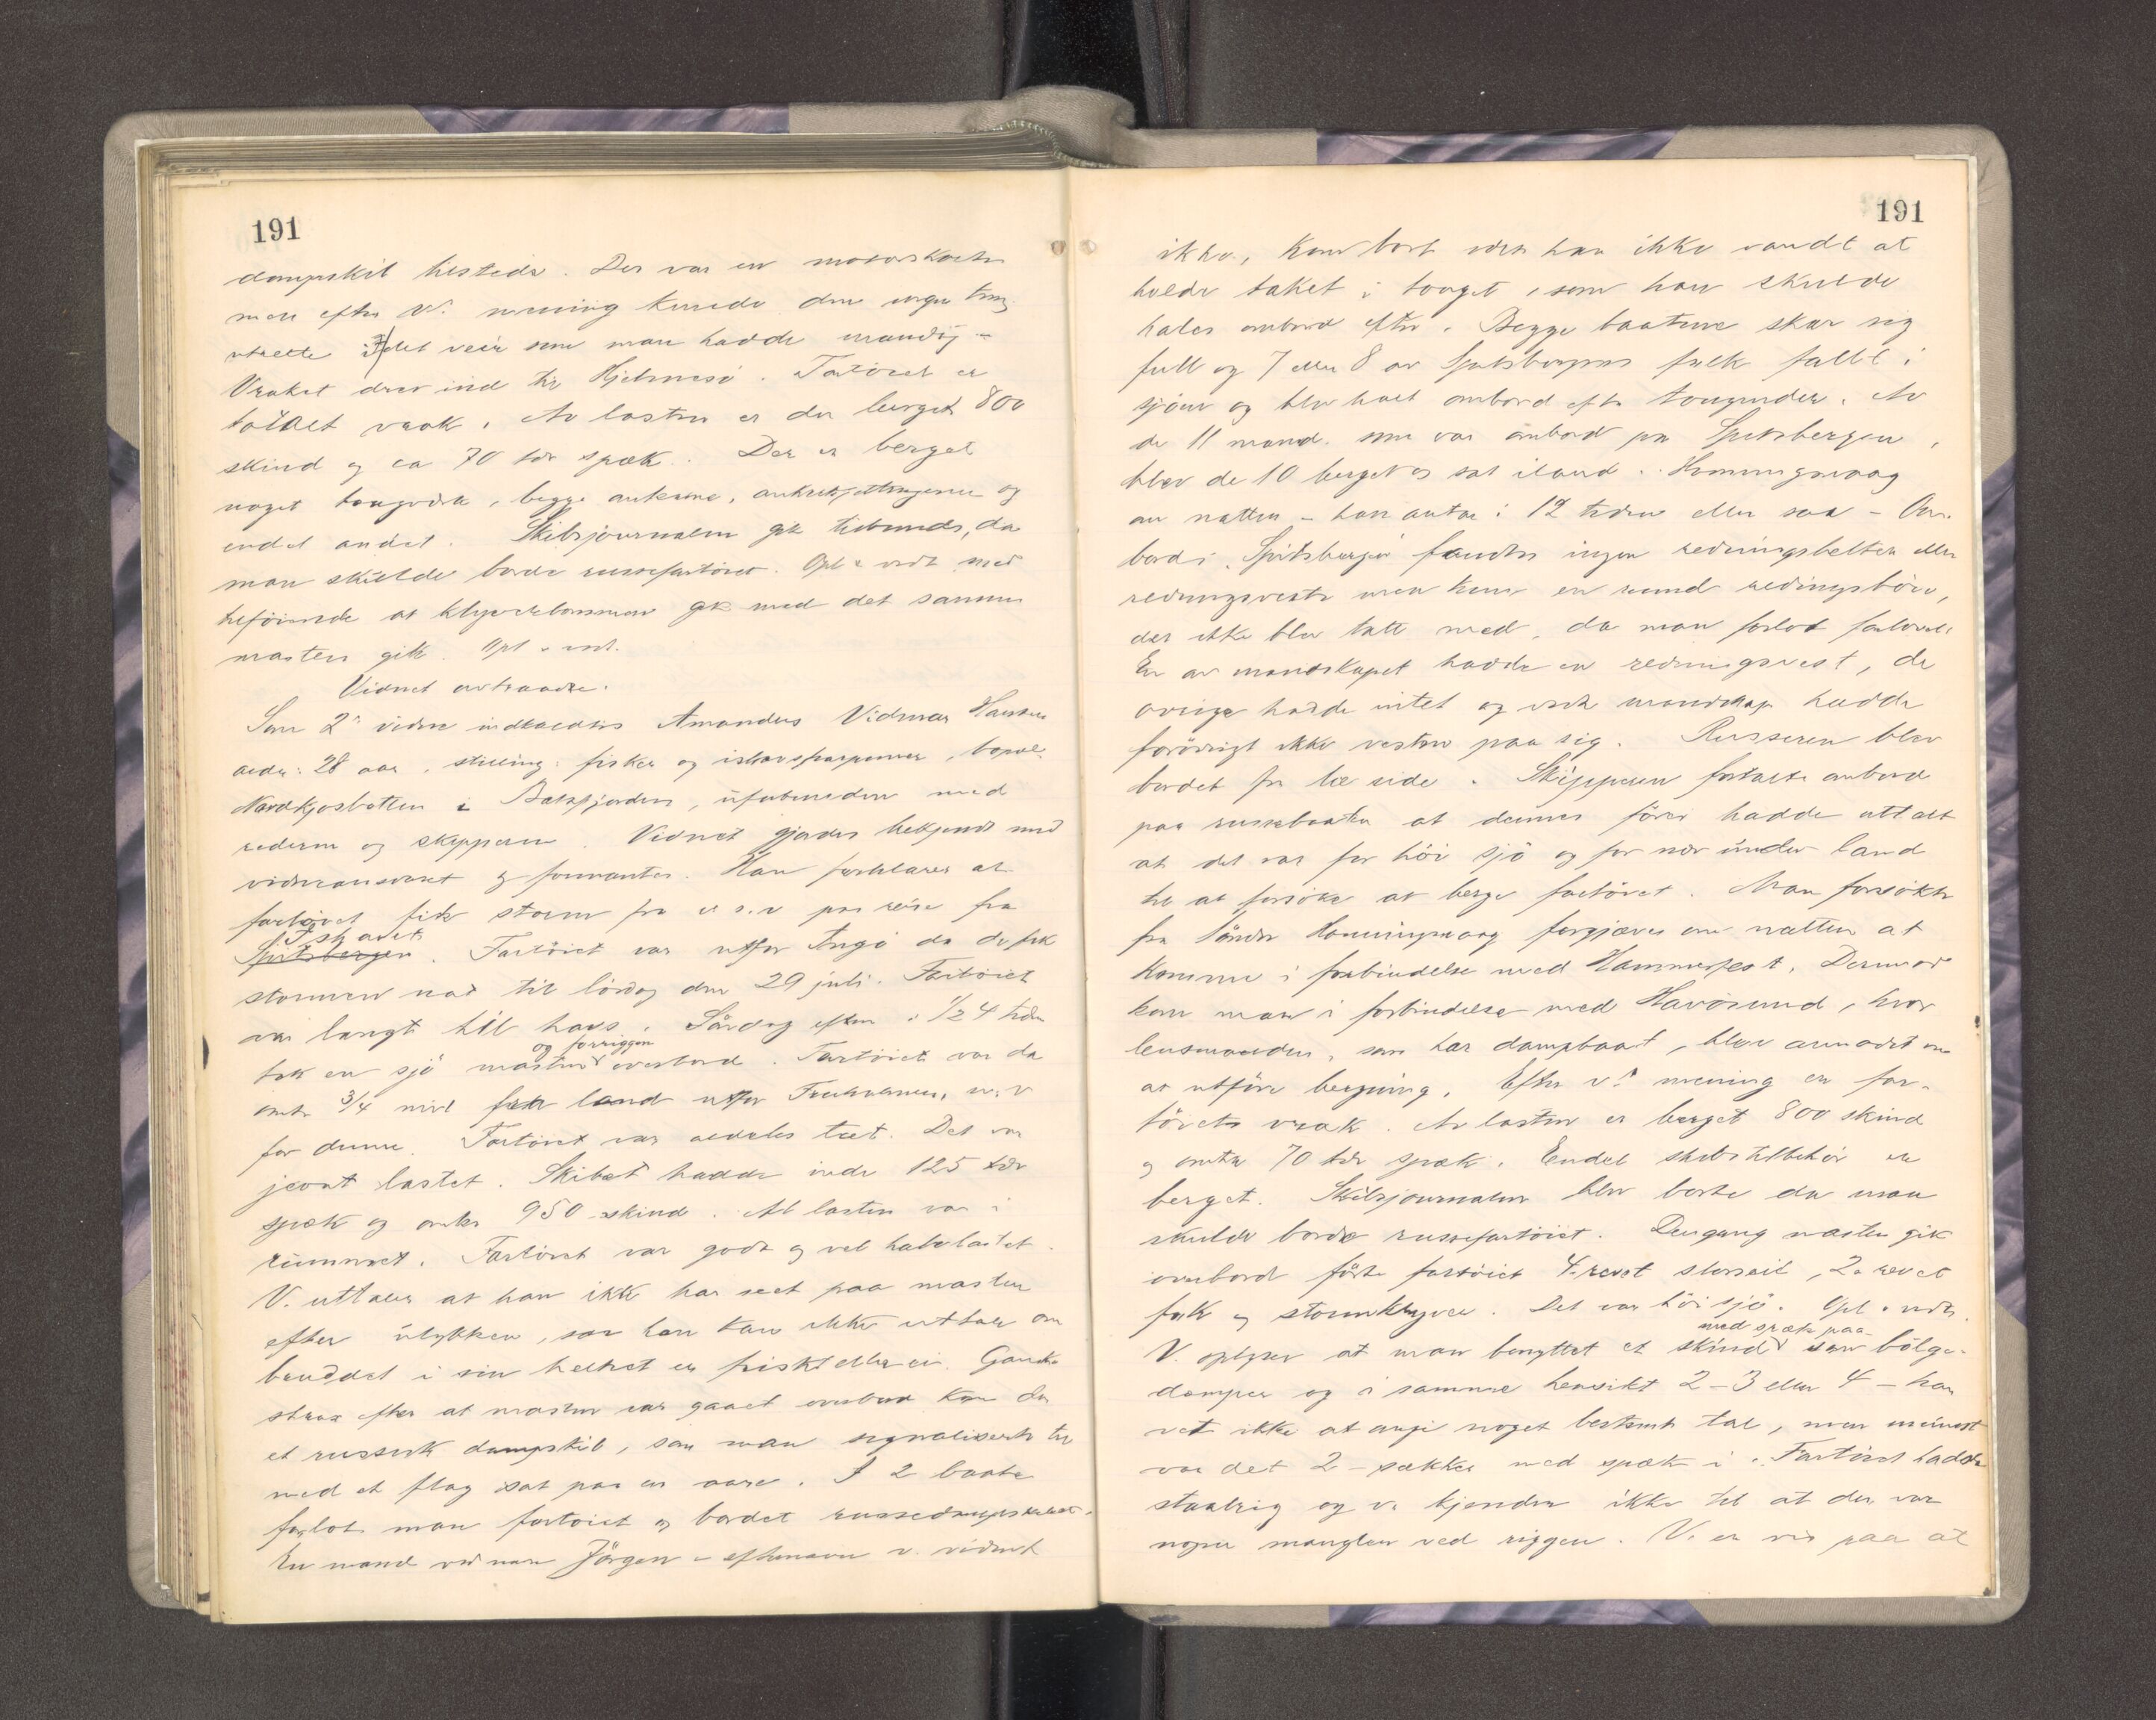 191
dampskib tilstede. Der var en motorskøite
men efter V. mening kunde den ingen ting
utrette i det veir som man hadde
Vraket drev ind til Hjelmesö. Fartöiet er
totalt vrak. Av lasten er der berget 800
skind og ca 70 tdr spæk. Der er berget
noget taugverk, begge ankerne, ankerkjettingerne og
endel andet. Skibsjournalen gik tilbunds, da
man skulde borde russefartöiet. Opl. vedt. med
tilföiende at klyverbommen gik med det samme
masten gik. Opl. vedt.
Vidnet fratraadte.
Som 2. vidne indkaldtes Amandus Vidmar Hansen
alder: 28 aar, stilling: fisker og ishavsfarer, bopæl:
Nordkjosbotten i Balsfjorden, ubeslegtet med
rederne og skipperen. Vidnet gjordes bekjendt med
vidneansvaret og formantes. Han forklarer at
fartöiet fik storm fra paa reise fra
Ishavet
Spitsbergen. Fartöiet var utfor Ingö da de fik
stormen nat til lördag den 29 juli. Fartöiet
var langt til havs. Lördag efterm. i 1/2 4 tiden
og forriggen
tok en sjö masten overbord. Fartöiet var da
omtr 3/4 mil fra land utfor
for denne. Fartöiet var aldeles tæt. Det var
jevnt lastet. Skibet hadde inde 125 tdr
spæk og omtr 950 skind. Al lasten var i
rummet. Fartöiet var godt og vel halvlastet.
V. uttaler at han ikke har seet paa masten
efter ulykken, saa han kan ikke uttale om
bruddet i sin helhet er friskt eller ei. Ganske
strax efter at masten var gaaet overbord kom der
et russisk dampskib, som man signaliserte til
med et flag sat paa en aare. I 2 baater
forlot man fartöiet og bordet russedampskibet.
En mand ved navn Jörgen - efternavn v. vidnet
191
ikke, kom bort idet han ikke vandt at
holde taket i tauget, som han skulde
hales ombord efter. Begge baatene skar sig
fuld og 7 eller 8 av Spitsbergens folk faldt i
sjöen og blev halt ombord efter tougender. Av
de 11 mand som var ombord paa Spitsbergen,
blev de 10 berget og sat iland i Honningsvaag
om natten - han antar i 12 tiden eller saa - Om-
bord i "Spitsbergen" fandtes ingen redningsbelter eller
redningsveste men kun en rund redningsböie,
der ikke blev tatt med, da man forlot fartöiet.
En av mandskapet hadde en redningsvest, de
övrige hadde intet og mandskap hadde
forövrigt ikke vester paa sig. Russeren blev
bordet fra læ side. Skipperen fortalte ombord
paa russebaaten at dennes förer hadde uttalt
at det var for höi sjö og for nær under land
til at forsöke at berge fartöiet. Man forsökte
fra Honningsvaag forgjæves om natten at
komme i forbindelse med Hammerfest. Derimot
kom man i forbindelse med Havösund, hvor
lensmanden, som har dampbaat, blev anmodet om
at utföre bergning. Efter v.s mening er far-
töiet vrak. Av lasten er berget 800 skind
og omtr 70 tdr spæk. Endel skibstilbehör er
berget. Skibsjournalen blev borte da man
skulde borde russefartöiet. Dengang masten gik
overbord förte fartöiet 4-revet storseil, 2-revet
fok og stormklyver. Det var höi sjö. Opl. vedt.
med spæk paa
V. oplyser at man benyttet et skind som bölge-
demper og i samme hensikt 2-3 eller 4 - han
vet ikke at angi noget bestemt tal, men mindst
var det 2 - sækker med spæk i. Fartöiet hadde
staalrig og v. kjender ikke til at der var
nogen mangler ved riggen. V. er vis paa at